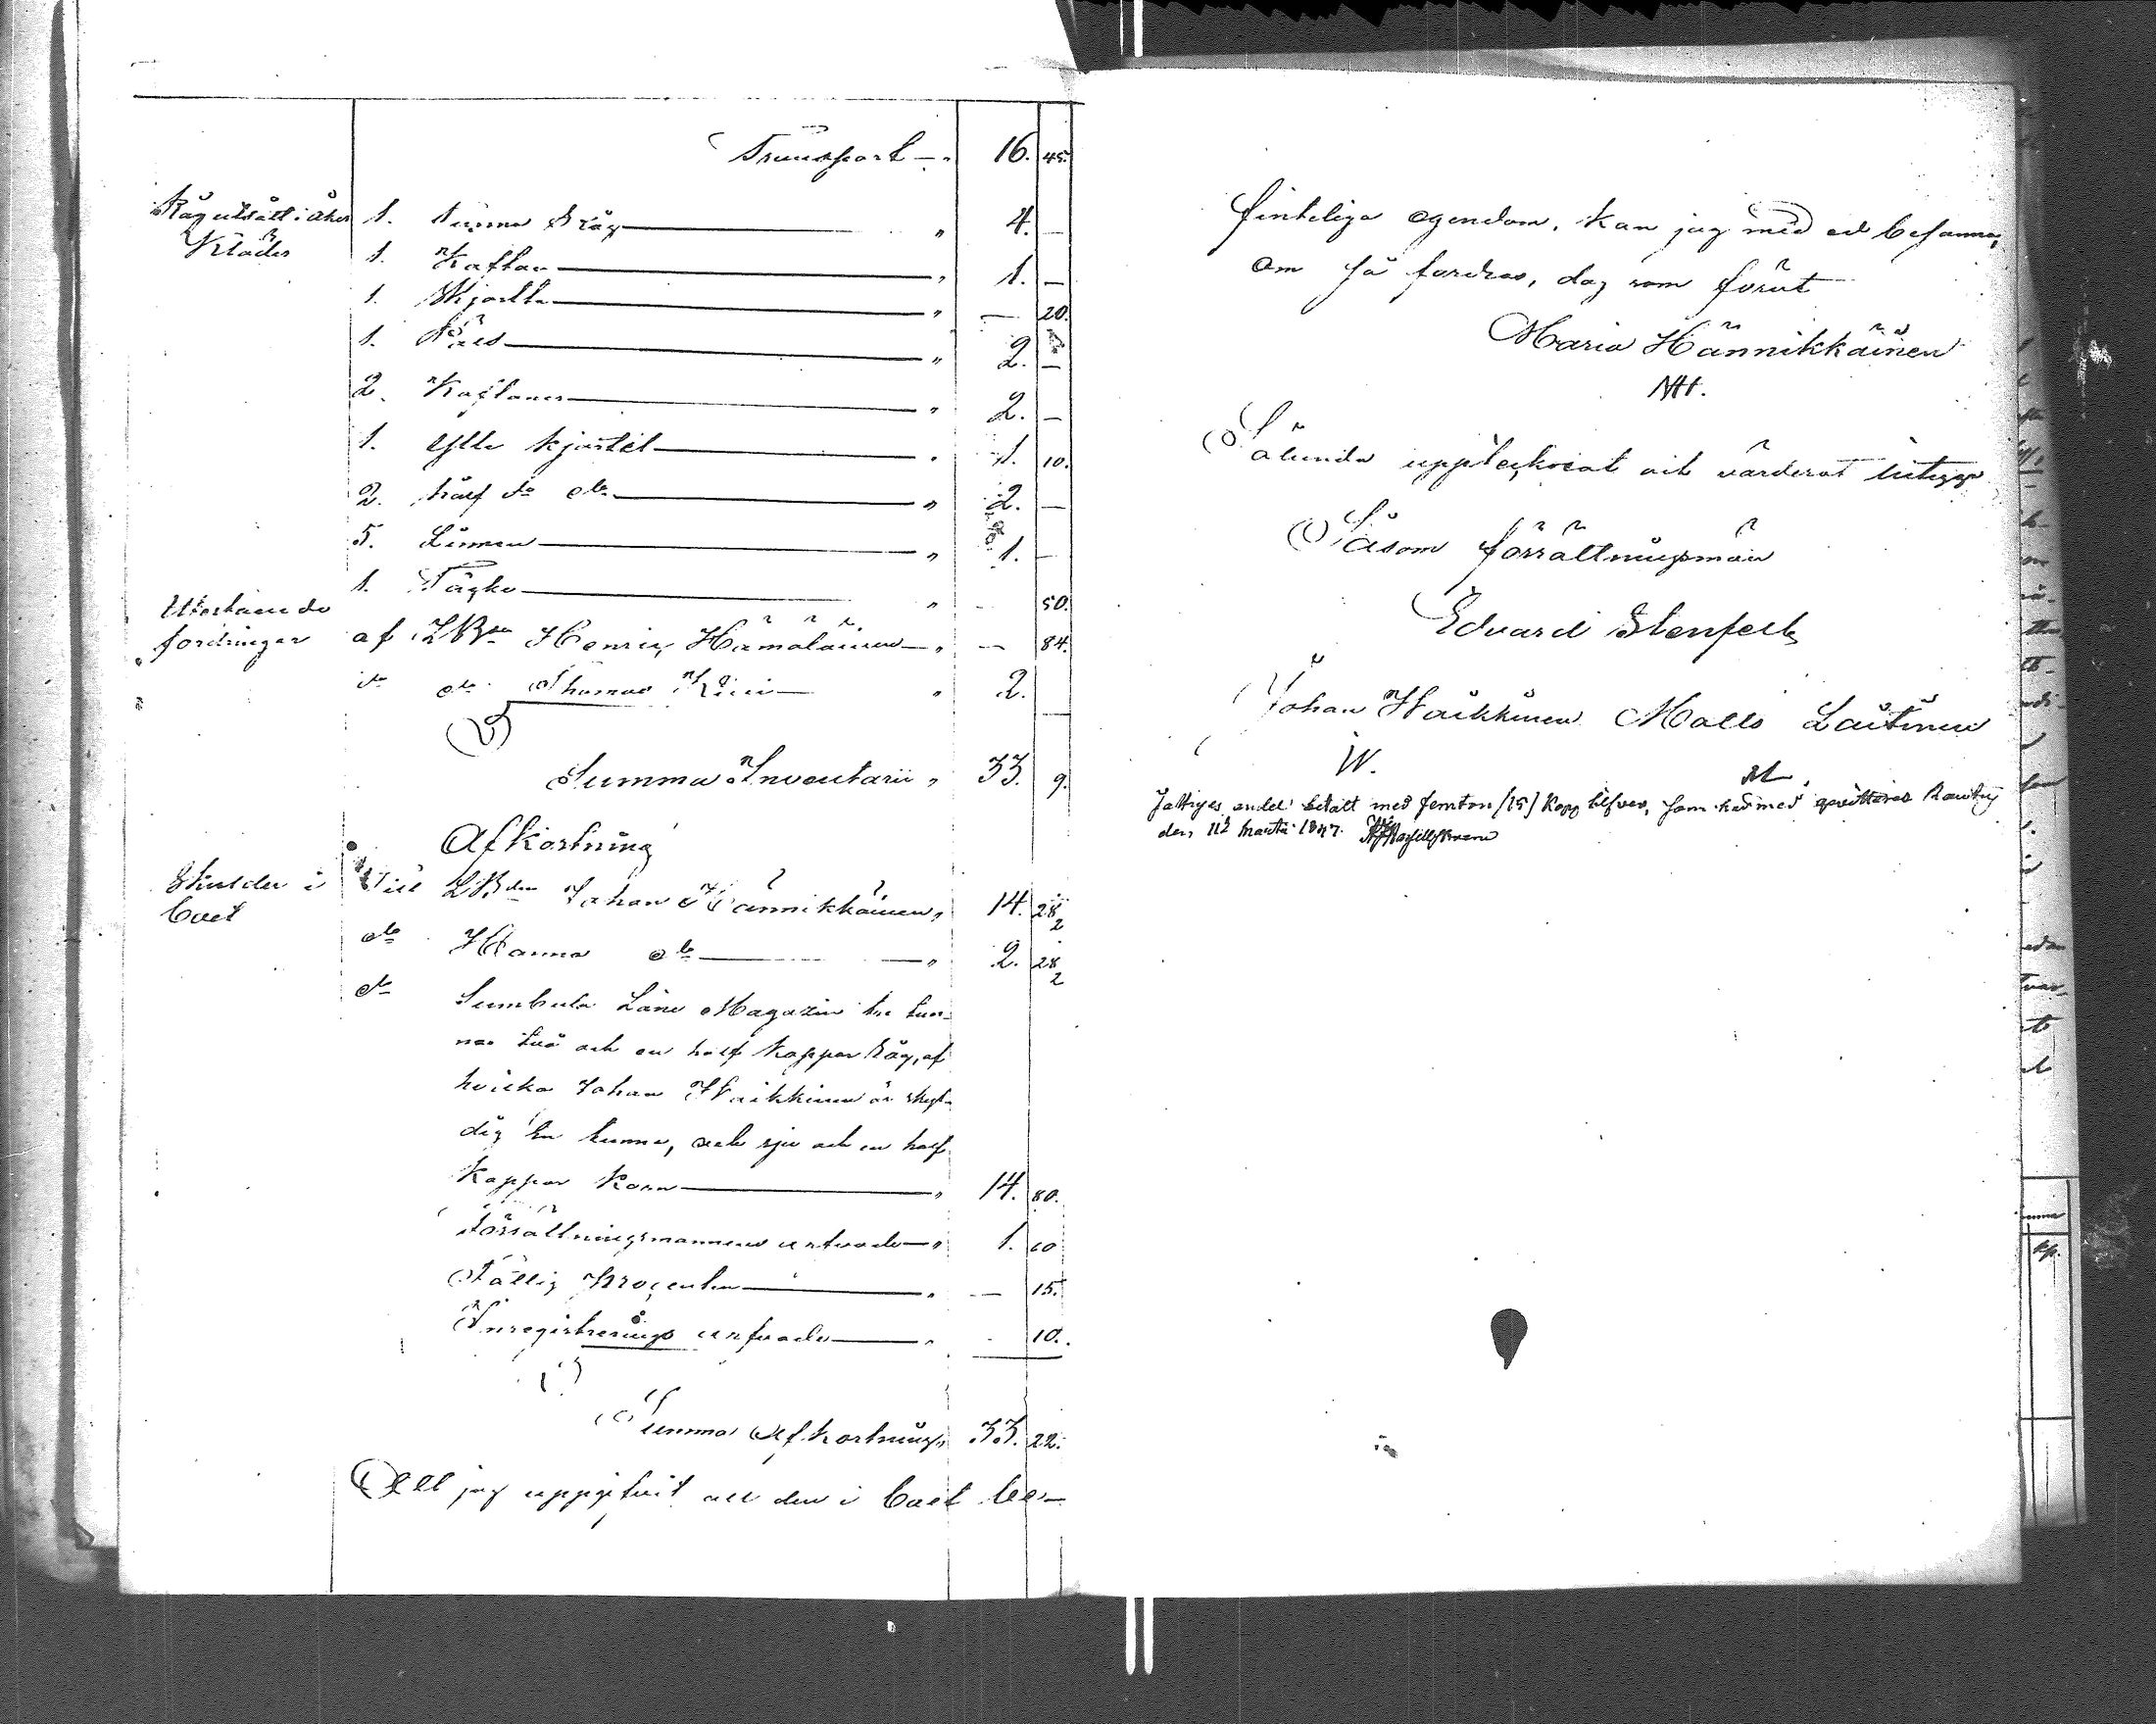 Transport — " 16. 45.
Råg utsått i åker 1. Tunna Råg — " 4. —
Kläder 1. Kaftan — " 1. —
1. Skjortta — " — 20.
1. Päls — " 2. —
2. Kaftaner — " 2. —
1. Ylle kjortel — " 1. 10.
2. half do do — " 2. —
5. Linnen — " 1. —
1. Täcke — " — 50.
Utestående
fordringar af LBdn Henric Hämäläinen — " — 84.
do do Thomas — " 2.
Summa Inventarii " 33. 9.
Afkortning
Skulder i Till LBden Johan Hännikkäinen " 14. 28
boet 2
do Hanna do — " 2. 28
2
do Sumbula Låne Magazin tre tun-
nor två och en half kappar Råg, af
hvilka Johan Waikkinen är skyl-
dig En tunna, och sju och en half
kappar Korn — " 14. 80.
Förrättningsmannens arfvode — " 1. 60
Fattig procenten — " — 15.
Inregistrerings arfvode — " 10.
Summa Afkortning " 33. 22.
Att jag uppgifvit all den i boet be-
finteliga egendom, kan jag med ed besanna,
om så fordras, dag som förut
Maria Hännikkäinen
Sålunda upptecknat och värderat intyga
Såsom förrättningsmän
Edvard Stenfelt
Johan Waikkinen Matts Laitinen
W. M.
Fattiges andel betalt med femton /15/ Kopp silfver, som hermed qvitteras
den 11 Martii 1847.